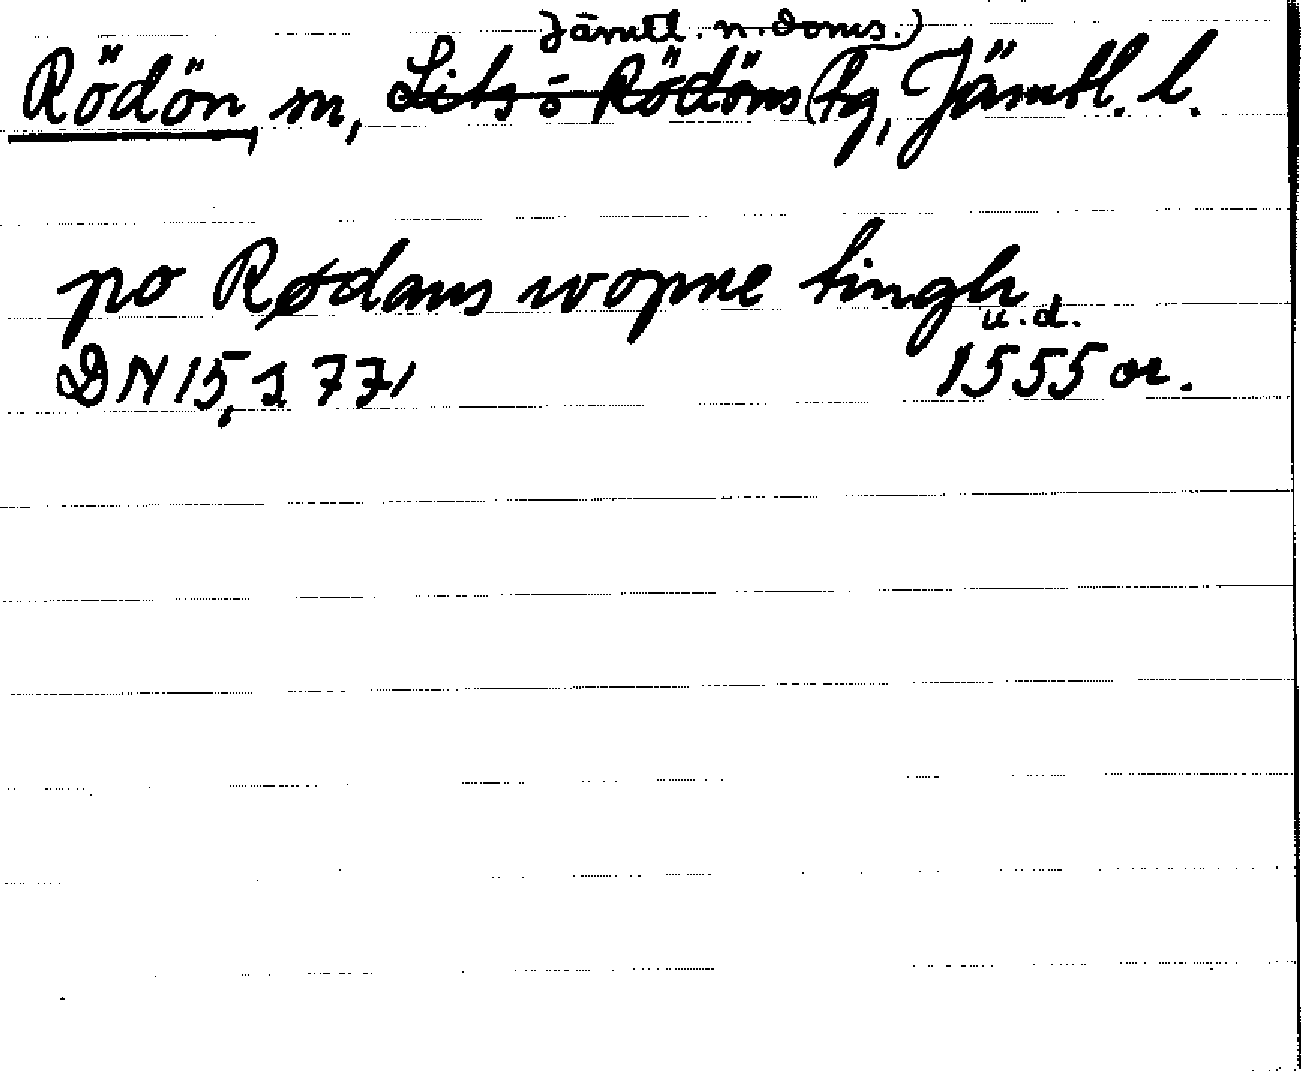 Jämtl. n. doms.)
Rödön, sn, Lits o Rödöns (tg, Jämtl. l.
po Rødans wopne tingh.
u.d.
DN 15, s 771 1555 or.